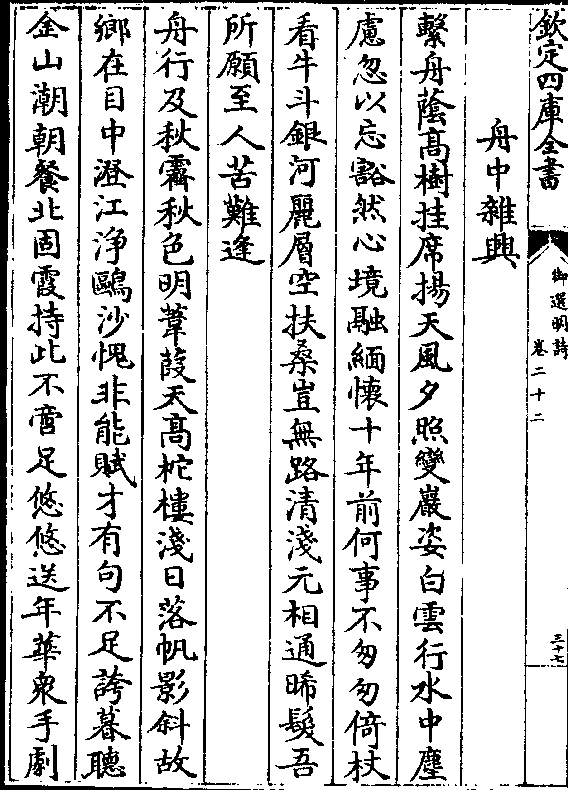 欽定四庫全書
御選明詩
卷二十二
三十七
舟中雜興
繫舟蔭高樹挂席揚天風夕照變巖姿白雲行水中塵
慮忽以忘豁然心境融緬懷十年前何事不匆匆倚杖
看牛斗銀河麗層空扶桑豈無路清淺元相通晞髮吾
所願至人苦難逢
舟行及秋霽秋色明葦葭天高柁樓淺日落帆影斜故
鄉在目中澄江淨鷗沙愧非能賦才有句不足誇暮聽
金山潮朝餐北固霞持此不啻足悠悠送年華衆手劇